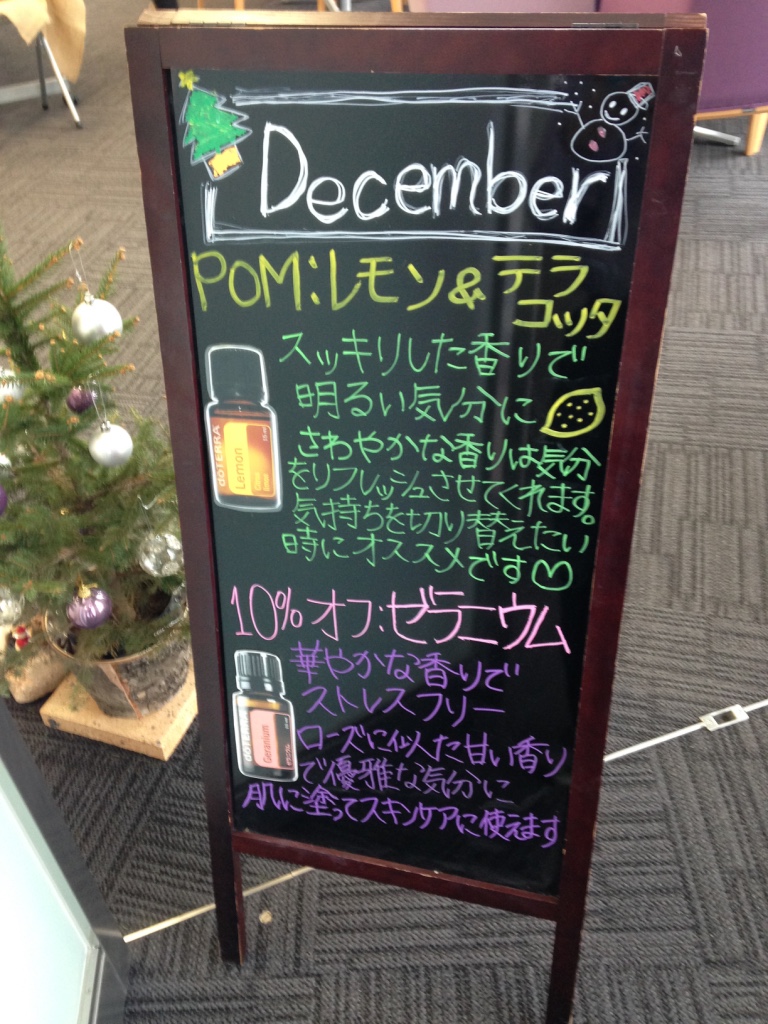 December
POM:レモン&テラ
コッタ
スッキリした香りで
明るい気分に
さわやかな香りは気分
をリフレッシュさせてくれます。
気持ちを切り替えたい
時にオススメです♡
doTERRA
Lemon
10%オフ:ゼラニウム
華やかな香りで
ストレスフリー
ローズに似た甘い香り
で優雅な気分に
肌に塗ってスキンケアに使えます
doTERRA
Geranium